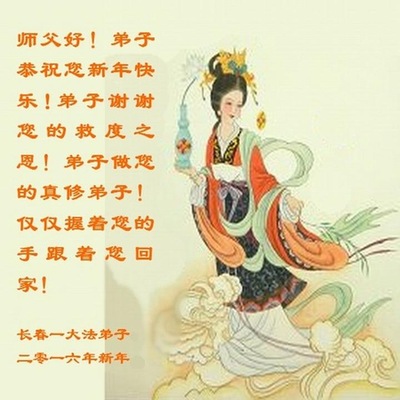 师父好！弟子
恭祝您新年快
乐！弟子谢谢
您的救度之
恩！弟子做您
的真修弟子！
仅仅握着您的
手跟着您回
家！
长春一大法弟子
二零一六年新年